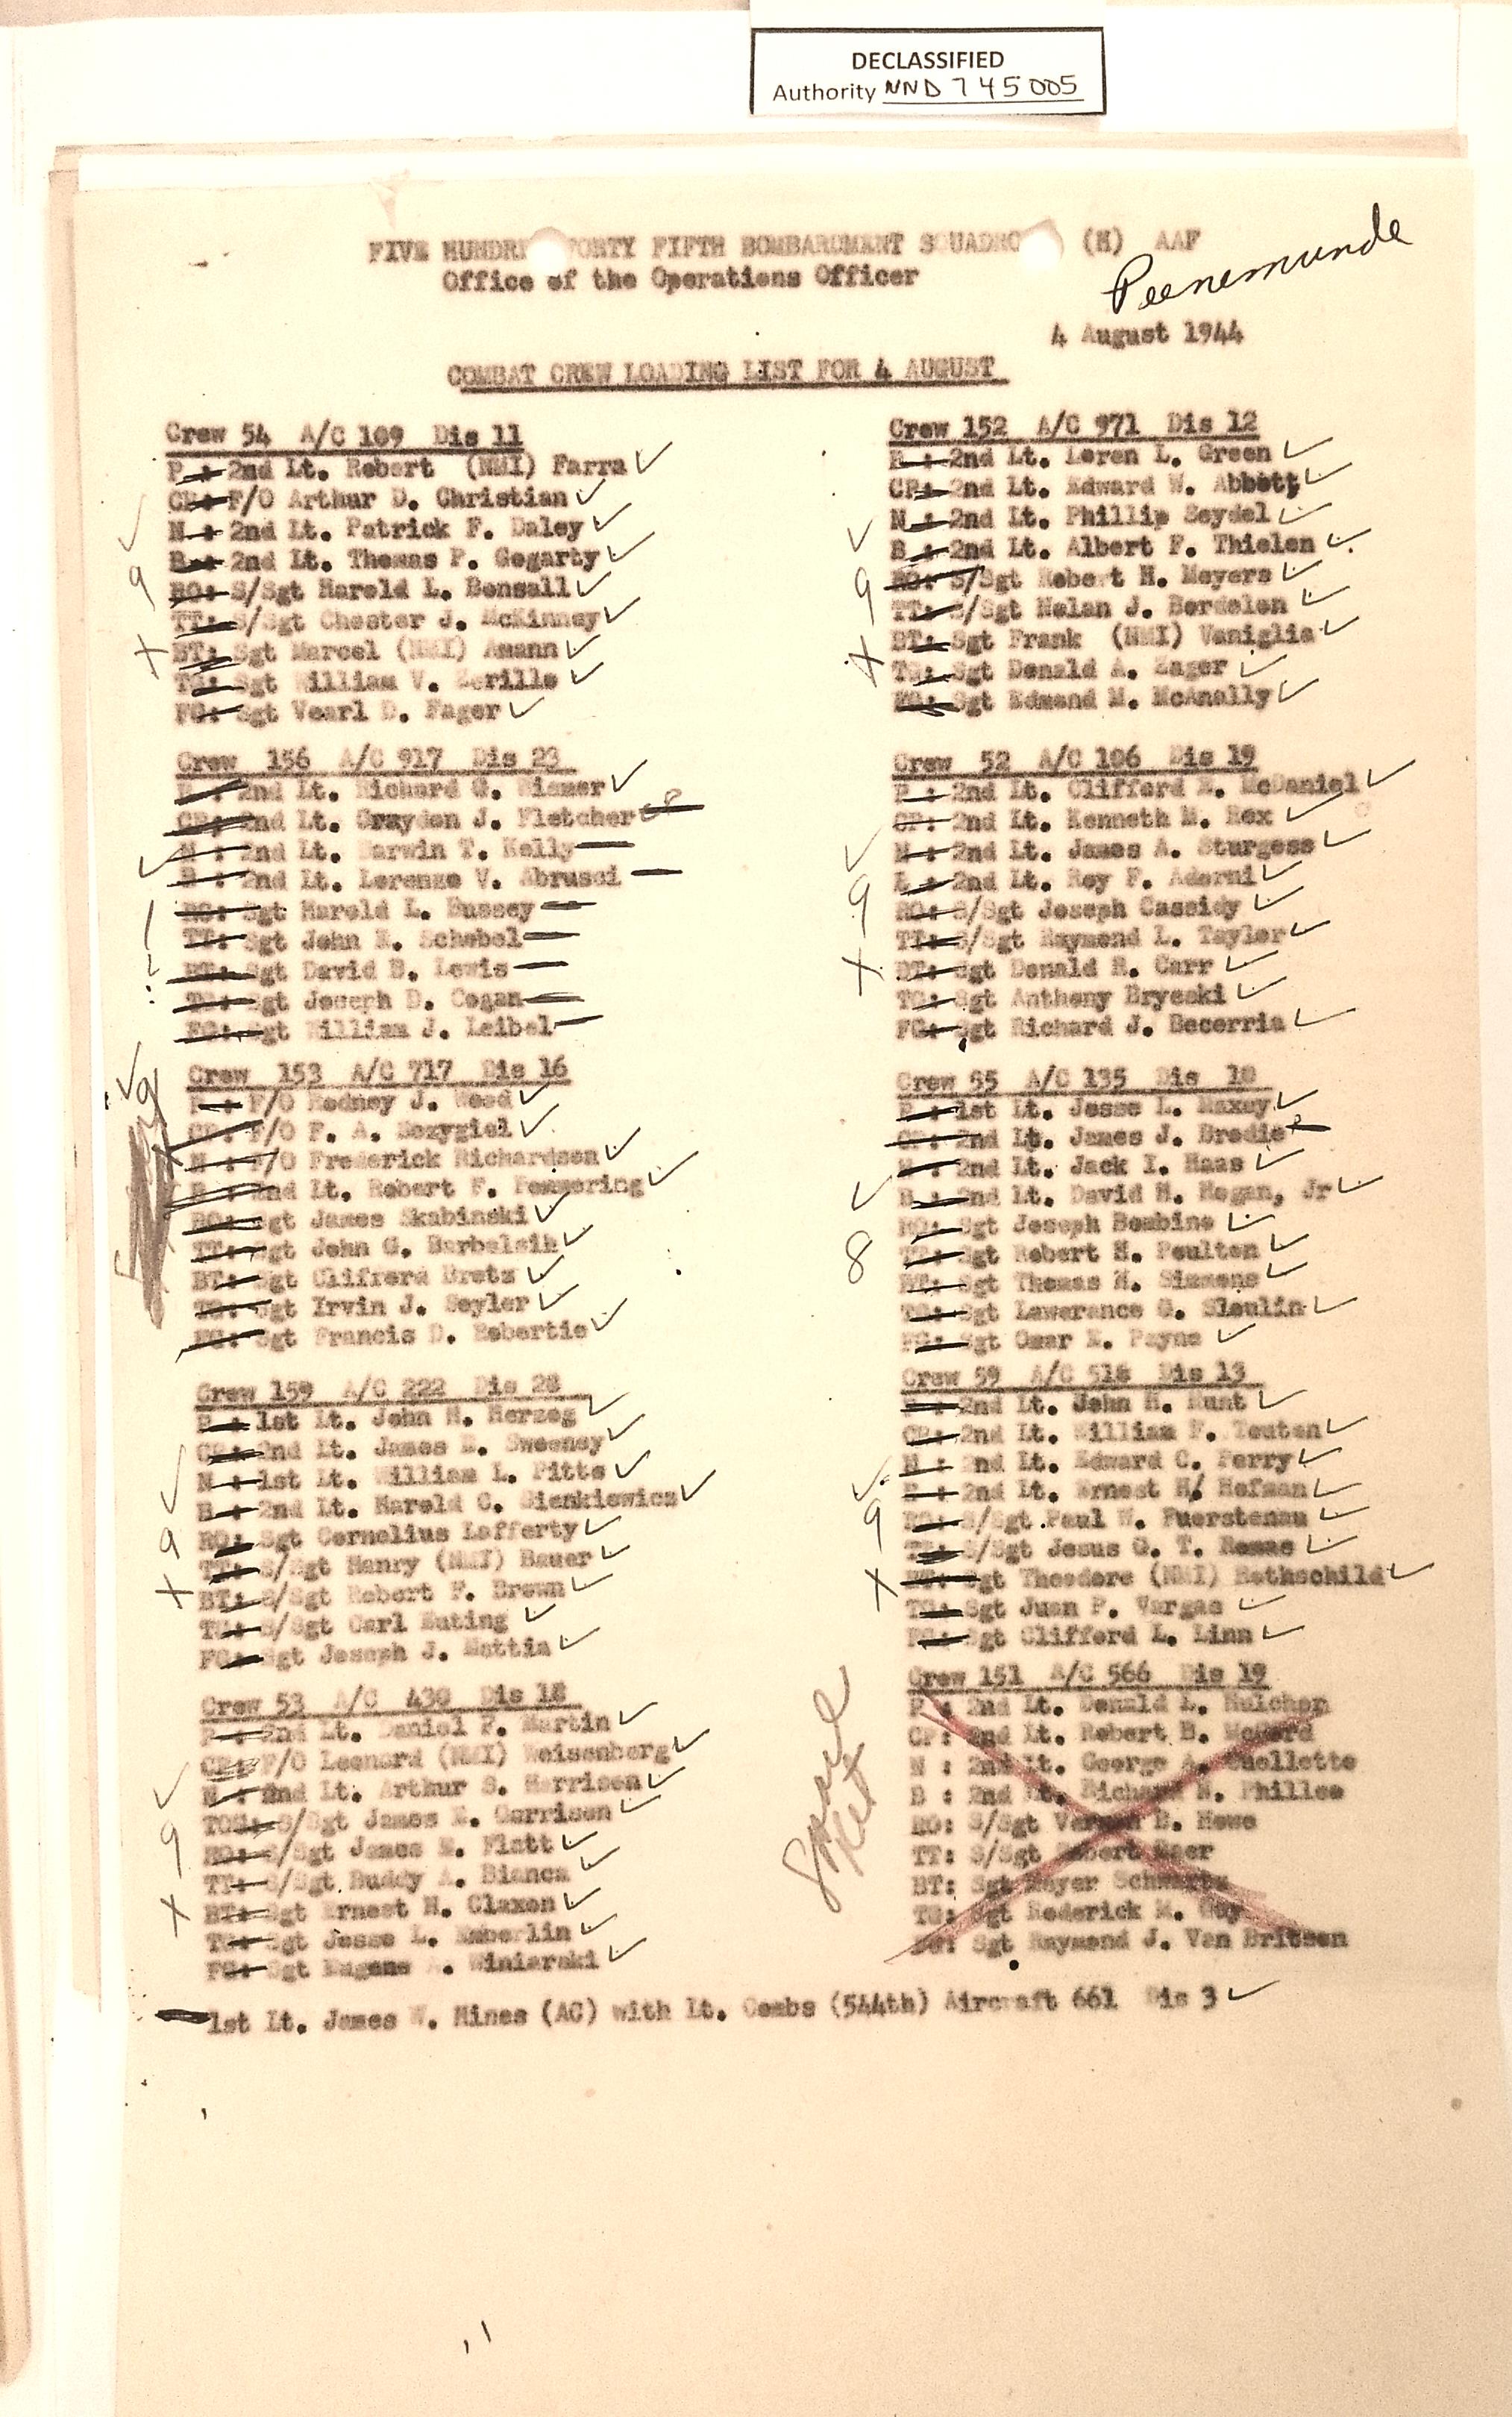 DECLASSIFIED
Authority NND 745005
FIVE HUNDRE FORTY FIFTH BOMBARDMENT SQUADRO (H) AAF
Office of the Operations Officer
Peenemunde
4 August 1944
COMBAT CREW LOADING LIST FOR 4 AUGUST
Crew 54 A/C 109 Dis 11
P : 2nd Lt. Robert (NMI) Farra
CP: F/O Arthur D. Christian
N : 2nd Lt. Patrick F. Daley
B : 2nd Lt. Thomas P. Gogarty
RO: S/Sgt Harold L. Bonsall
TT: S/Sgt Chester J. McKinney
BT: Sgt Marcel (NMI) Amann
TG: Sgt William V. Zerille
FG: Sgt Vearl D. Fager
9
X
Crew 156 A/C 917 Dis 23
P : 2nd Lt. Richard G. Wismer
CP: 2nd Lt. Grayden J. Fletcher
N : 2nd Lt. Darwin T. Kelly
B : 2nd Lt. Lorenzo V. Abrusci
RO: Sgt Harold L. Bussey
TT: Sgt John E. Schebel
BT: Sgt David B. Lewis
TG: Sgt Joseph D. Cogan
FG: Sgt William J. Leibel
Crew 153 A/C 717 Dis 16
P : F/O Rodney J. Wood
CP: F/O F. A. Sozygiel
N : F/O Frederick Richardson
B : 2nd Lt. Robert F. Pommering
RO: Sgt James Skabinski
TT: Sgt John G.
BT: Sgt Clifford Bretz
TG: Sgt Irvin J. Seyler
FG: Sgt Francis D. Robertie
9
Crew 159 A/C 222 Dis 28
P : 1st Lt. John H. Herzog
CP: 2nd Lt. James E. Sweeney
N : 1st Lt. William L. Pitts
B : 2nd Lt. Harold C. Sienkiewicz
RO: Sgt Cornelius Lafferty
TT: S/Sgt Henry (NMI) Bauer
BT: S/Sgt Robert F. Brown
TG: S/Sgt Carl Euting
FG: Sgt Joseph J. Mattia
9
X
Crew 53 A/C 430 Dis 18
P : 2nd Lt. Daniel F. Martin
CP: F/O Leonard (NMI) Weisenberg
N : 2nd Lt. Arthur S. Harrison
TOG: S/Sgt James E. Garrison
RO: S/Sgt James E. Flatt
TT: S/Sgt Buddy A. Bianca
BT: Sgt Ernest H. Claxon
TG: Sgt Jesse L. Emberlin
FG: Sgt Eugene A. Winiarski
9
X
Crew 152 A/C 971 Dis 12
P : 2nd Lt. Loren L. Green
CP: 2nd Lt. Edward W. Abbott
N : 2nd Lt. Phillip Seydel
B : 2nd Lt. Albert F. Thielen
RO: S/Sgt Robert H. Meyers
TT: S/Sgt Nolan J. Bordelon
BT: Sgt Frank (NMI) Vaniglia
TG: Sgt Donald A. Zager
FG: Sgt Edmond M. McAnally
9
X
Crew 52 A/C 106 Dis 19
P : 2nd Lt. Clifford E. McDaniel
CP: 2nd Lt. Kenneth M. Rex
N : 2nd Lt. James A. Sturgess
B : 2nd Lt. Roy F. Adorni
RO: S/Sgt Joseph Cassidy
TT: S/Sgt Raymond L. Tayler
BT: Sgt Donald R. Carr
TG: Sgt Anthony Bryecki
FG: Sgt Richard J. Becerria
9
X
Crew 55 A/C 135 Dis 10
P : 1st Lt. Jesse L. Maxey
CP: 2nd Lt. James J. Brodie
N : 2nd Lt. Jack I. Haas
B : 2nd Lt. David H. Hogan, Jr
RO: Sgt Joseph Bombino
TT: Sgt Robert H. Poulton
BT: Sgt Thomas H. Simmons
TG: Sgt Lawerance G. Sloulin
FG: Sgt Omar E. Payne
8
Crew 59 A/C 518 Dis 13
P : 2nd Lt. John H. Hunt
CP: 2nd Lt. William F. Teuten
N : 2nd Lt. Edward C. Perry
B : 2nd Lt. Ernest H/ Hofman
RO: S/Sgt Paul W. Fuerstenau
TT: S/Sgt Jesus G. T. Romas
BT: Sgt Theodore (NMI) Rothschild
TG: Sgt Juan P. Vargas
FG: Sgt Clifford L. Linn
9
X
Crew 151 A/C 566 Dis 19
P : 2nd Lt. Donald L. Mulchop
CP: 2nd Lt. Robert B. McCord
N : 2nd Lt. George A. Ouellette
B : 2nd Lt. Richard N. Phillee
RO: S/Sgt Vernon B. Howe
TT: S/Sgt Robert
BT: Sgt Meyer Schwartz
TG: Sgt Roderick M. Guy
FG: Sgt Raymond J. Van Britsen
1st Lt. James W. Hines (AC) with Lt. Combs (544th) Aircraft 661 Dis 3